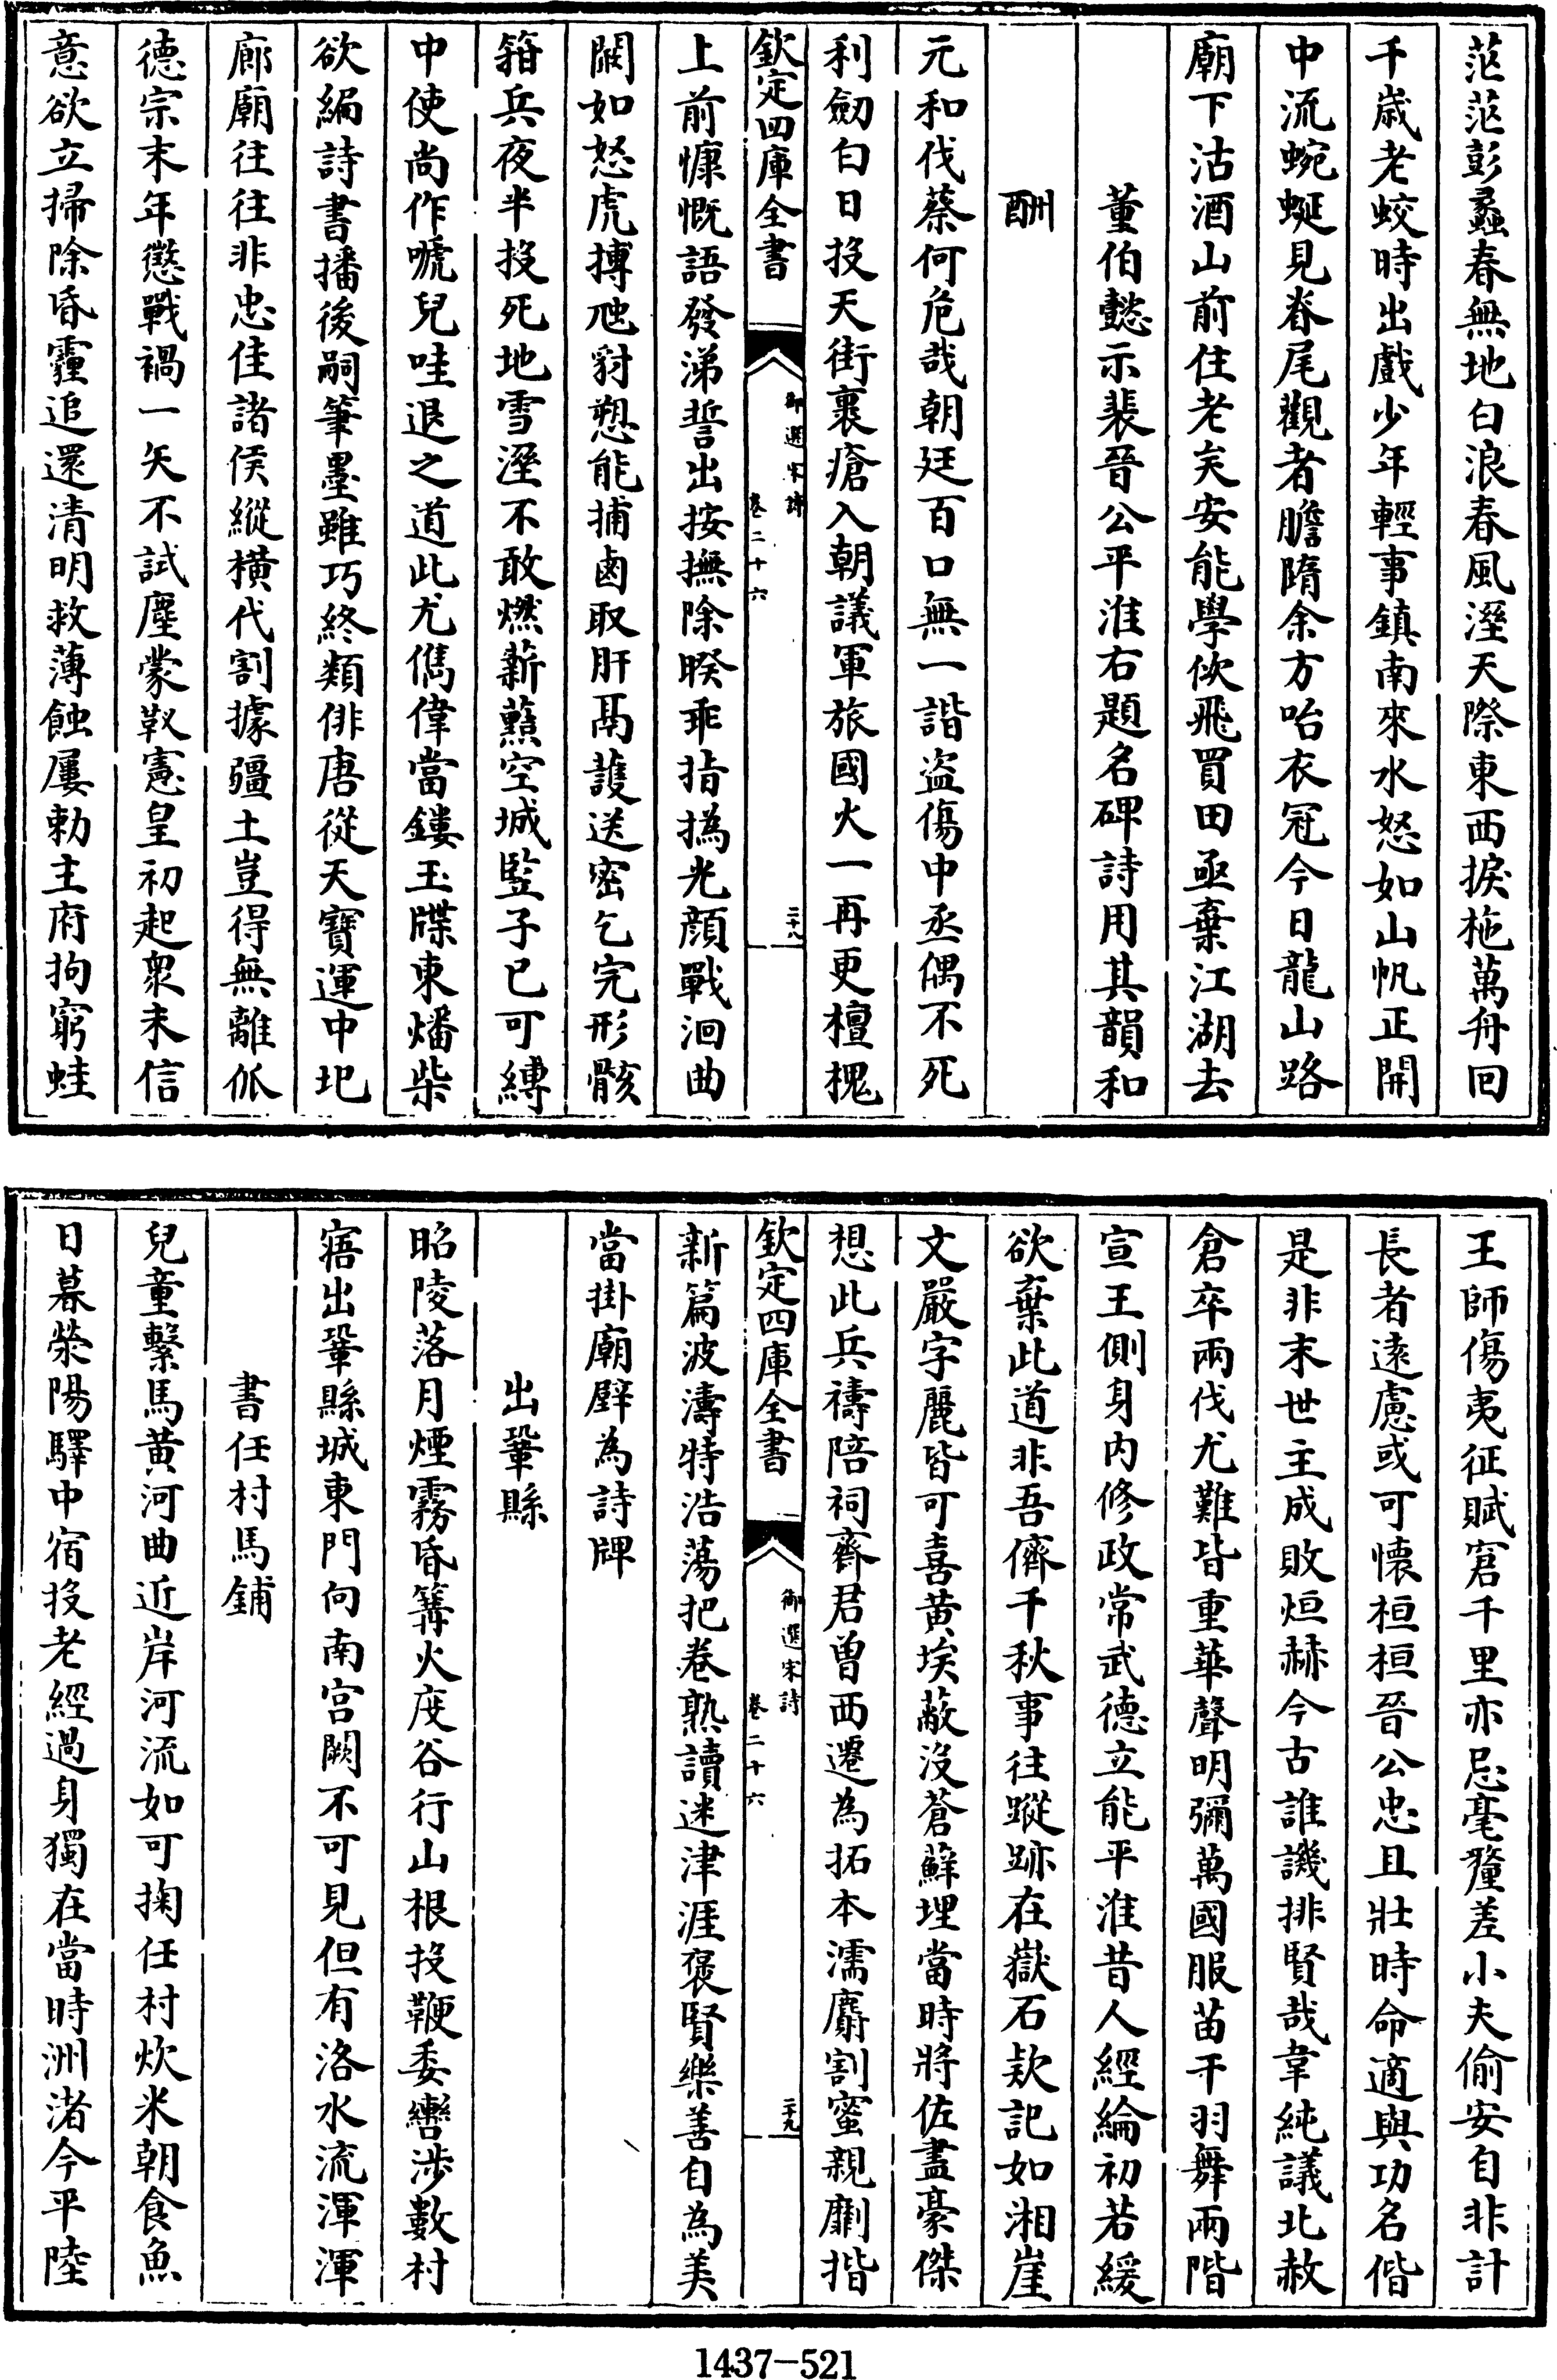 茫茫彭蠡春無地白浪春風溼天際東西捩柂萬舟回
千歳老蛟時出戲少年輕事鎮南來水怒如山帆正開
中流蜿蜒見脊尾觀者膽隋余方咍衣冠今日龍山路
廟下沽酒山前住老矣安能學佽飛買田亟棄江湖去
董伯懿示裴晉公平淮右題名碑詩用其韻和
酬
元和伐蔡何危哉朝廷百口無一諧盗傷中丞偶不死
利劒白日投天街裹瘡入朝議軍旅國火一再更檀槐
欽定四庫全書
御選宋詩
卷二十六
二十八
上前慷慨語發涕誓出按撫除睽乖指撝光顔戰洄曲
闞如怒虎搏虺豺愬能捕鹵取肝鬲護送密乞完形骸
箝兵夜半投死地雪溼不敢燃薪蘓空城豎子已可縛
中使尚作嗁兒哇退之道此尤儁偉當鏤玉牒東燔柴
欲編詩書播後嗣筆墨雖巧終類俳唐從天寶運中圯
廊廟往往非忠佳諸侯縱横代割據疆土豈得無離㧗
德宗末年懲戰禍一矢不試塵蒙靫憲皇初起衆未信
意欲立掃除昏霾追還清明救薄蝕屢勅主府拘窮蛙
王師傷夷征賦窘千里亦忌毫釐差小夫偷安自非計
長者逺慮或可懐桓桓晉公忠且壯時命適與功名偕
是非末世主成敗烜赫今古誰譏排賢哉韋純議北赦
倉卒兩伐尤難皆重華聲明彌萬國服苗干羽舞兩階
宣王側身内修政常武德立能平淮昔人經綸初若緩
欲棄此道非吾儕千秋事往蹤跡在嶽石欵記如湘崖
文嚴字麗皆可喜黄埃蔽沒蒼蘚埋當時將佐盡豪傑
想此兵禱陪祠齋君曽西遷為拓本濡麝割蜜親劘揩
欽定四庫全書
御選宋詩
卷二十六
二十九
新篇波濤特浩蕩把卷熟讀迷津涯褒賢樂善自為美
當掛廟壁為詩牌
出鞏縣
昭陵落月煙霧昏篝火度谷行山根投鞭委轡涉數村
寤出鞏縣城東門向南宫闕不可見但有洛水流渾渾
書任村馬鋪
兒童繫馬黄河曲近岸河流如可掬任村炊米朝食魚
日暮滎陽驛中宿投老經過身獨在當時洲渚今平陸
1437-521